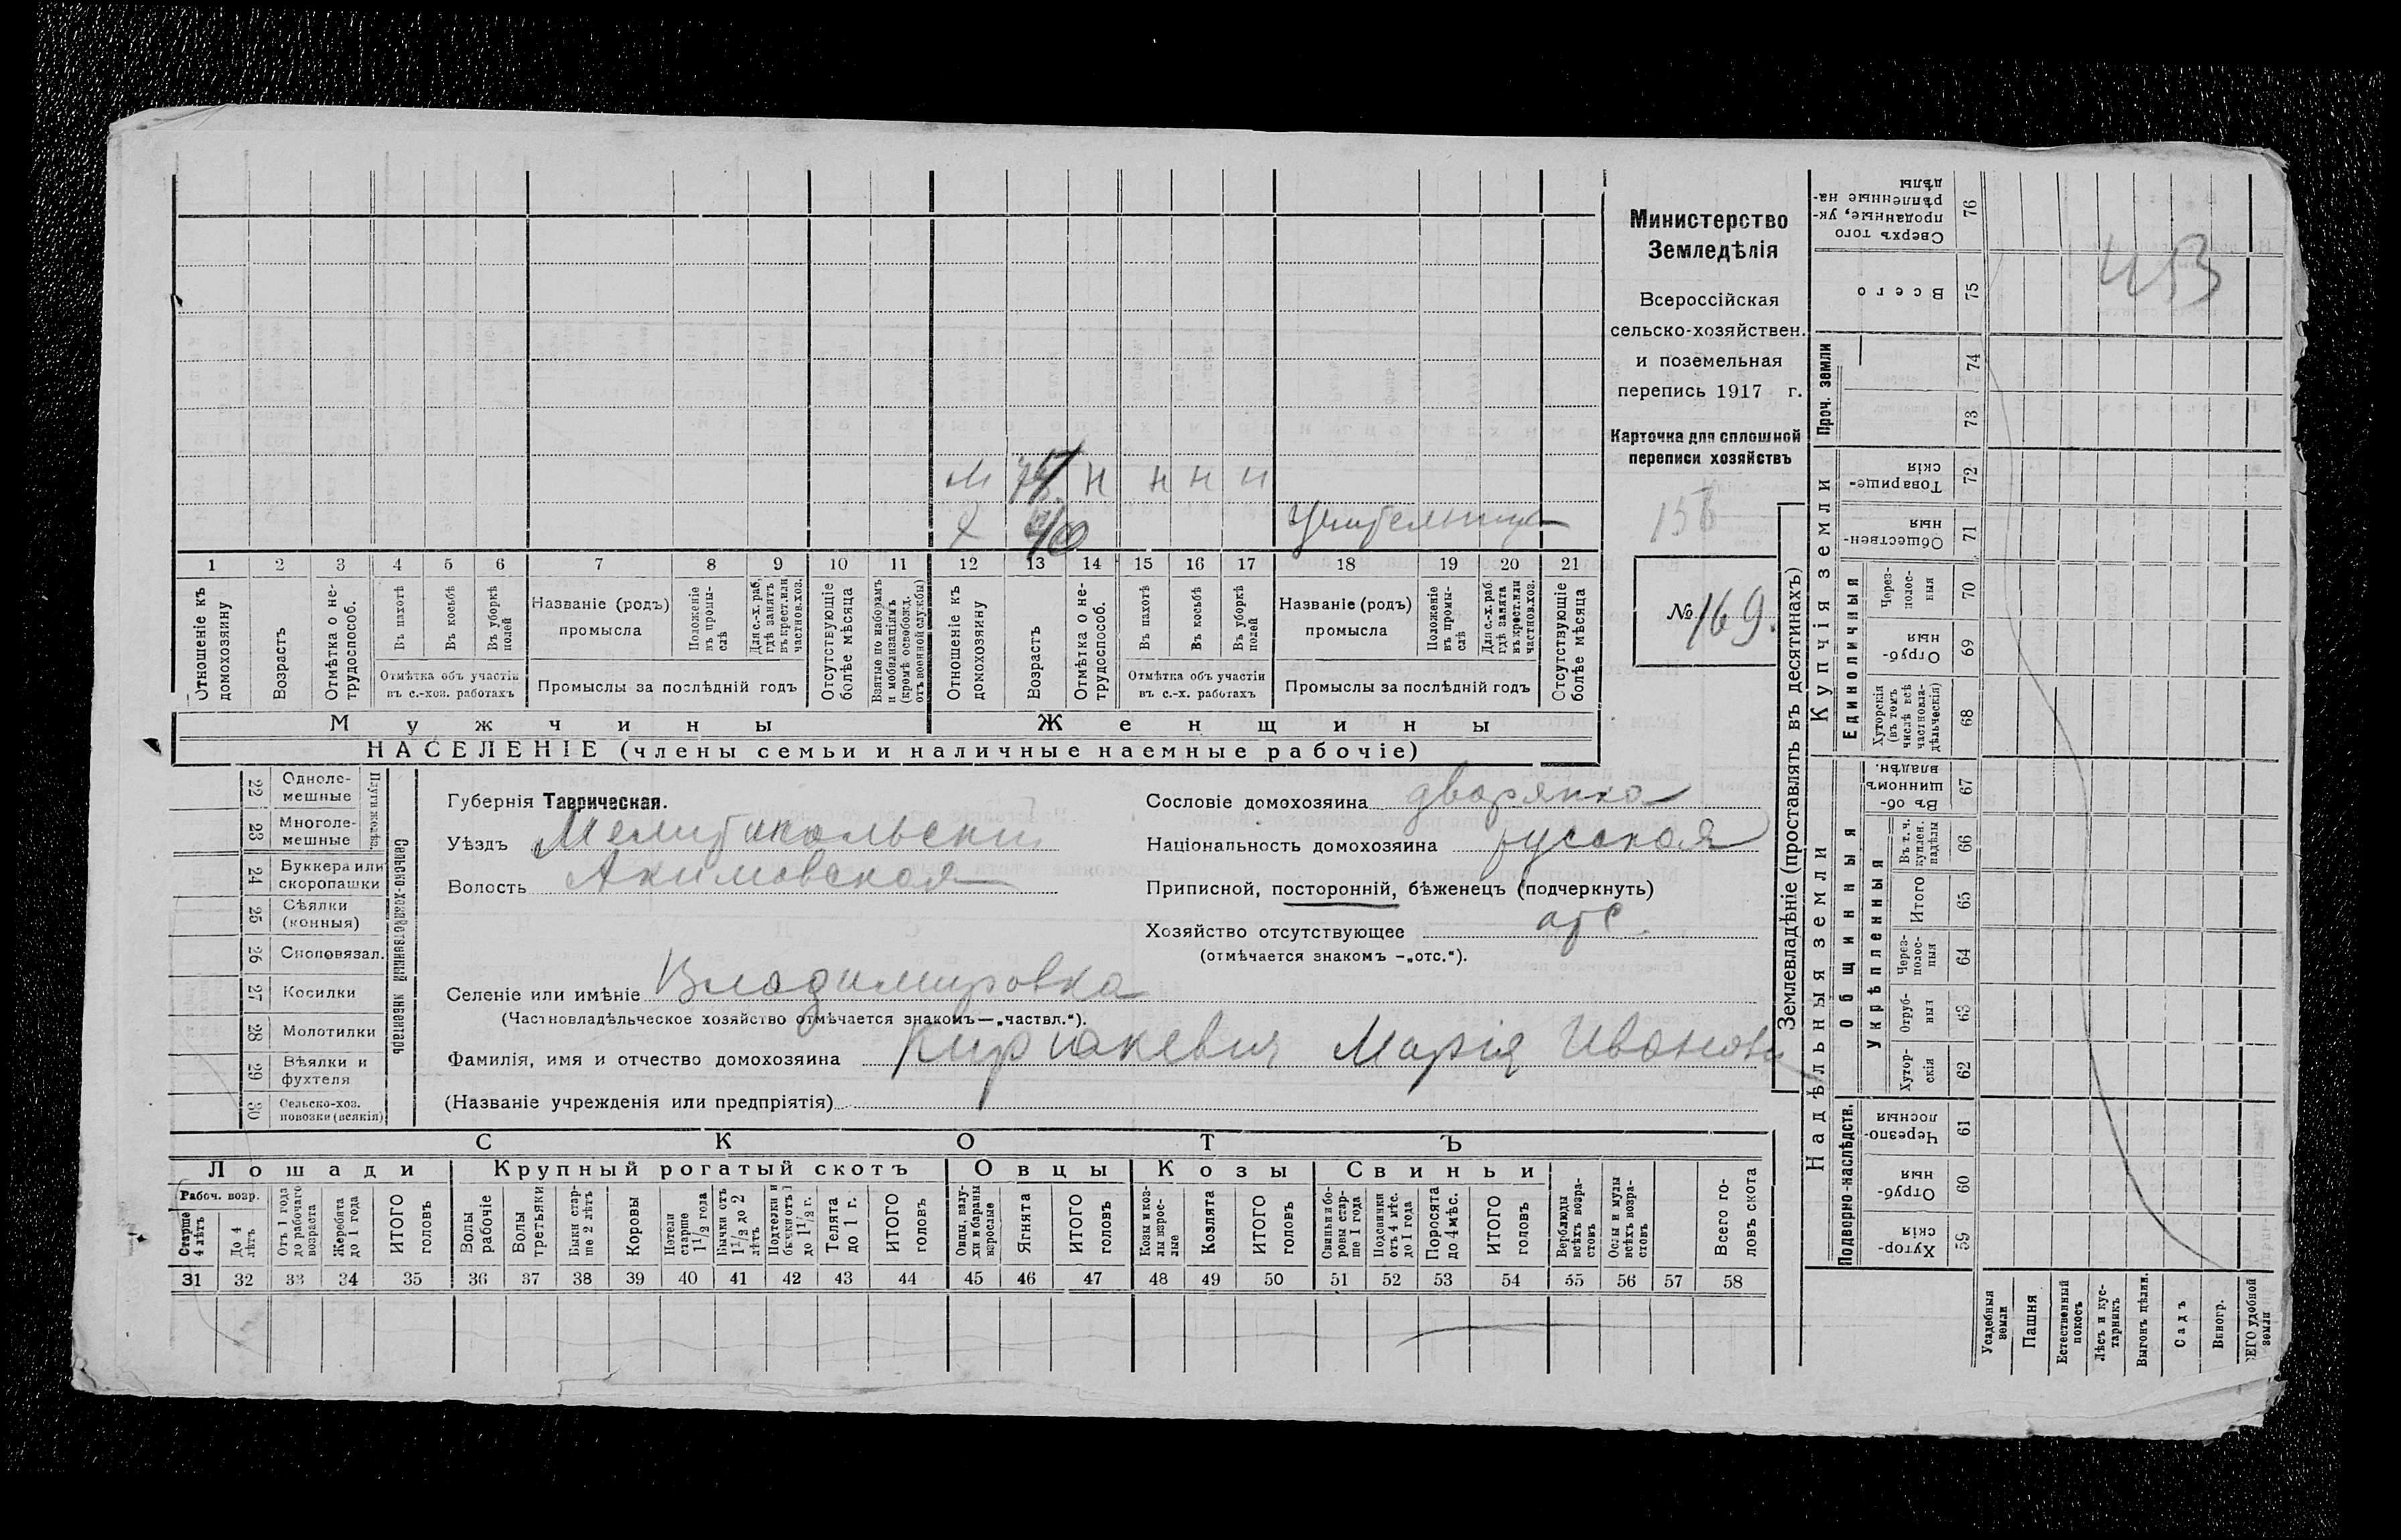 Министерство
Земледѣлія
Всероссійская
сельско-хозяйствен.
и поземельная
перепись 1917 г.
Карточка для сплошной
переписи хозяйствъ
156
№ 169.
м 75 н н н н
х 40 учительница
1 2 3 4 5 6 7 8 9 10 11 12 13 14 15 16 17 18 19 20 21
Отношеніе къ домохозяину
Возрастъ
Отмѣтка о не-трудоспособ.
Въ пахотѣ
Въ косьбѣ
Въ уборкѣ полей
Отмѣтка объ участіи въ с.-хоз. работахъ
Названіе (родъ) промысла
Положеніе въ промы-слѣ
Для с.-х. раб. гдѣ занятъ въ крест. или частнов. хоз.
Промыслы за послѣдній годъ
Отсутствующіе болѣе мѣсяца
Взятые по наборамъ и мобилизаціямъ (кромѣ освобожд. отъ военной службы)
Отношеніе къ домохозяину
Возрастъ
Отмѣтка о не-трудоспособ.
Въ пахотѣ
Въ косьбѣ
Въ уборкѣ полей
Отмѣтка объ участіи въ с.-х. работахъ
Названіе (родъ) промысла
Положеніе въ промы-слѣ
Для с.-х. раб. гдѣ занята въ крест. или частнов. хоз.
Промыслы за послѣдній годъ
Отсутствующіе болѣе мѣсяца
Мужчины Женщины
НАСЕЛЕНІЕ (члены семьи и наличные наемные рабочіе)
22 Одноле-мешные
23 Многоле-мешные
Плуги желѣз.
24 Буккера или скоропашки
25 Сѣялки (конныя)
26 Сноповязал.
27 Косилки
28 Молотилки
29 Вѣялки и фухтеля
30 Сельско-хоз. повозки (всякія)
Сельско-хозяйственный инвентарь
Губернія Таврическая.
Уѣздъ Мелитопольскій
Волость Акимовская
Сословіе домохозяина дворянка
Національность домохозяина русская
Приписной, посторонній, бѣженецъ (подчеркнуть)
Хозяйство отсутствующее отс.
(отмѣчается знакомъ -„отс.“).
Селеніе или имѣніе Владимировка
(Частновладѣльческое хозяйство отмѣчается знакомъ—„частвл.“).
Фамилія, имя и отчество домохозяина Киріакевич Марія Иванова
(Названіе учрежденія или предпріятія)
СКОТЪ
Лошади Крупный рогатый скотъ Овцы Козы Свиньи
Рабоч. возр.
Старше 4 лѣтъ
До 4 лѣтъ
Отъ 1 года до рабочаго возраста
Жеребята до 1 года
ИТОГО головъ
Волы рабочіе
Волы третьяки
Быки стар-ше 2 лѣтъ
Коровы
Нетели старше 1 1/2 года
Бычки отъ 1 1/2 до 2 лѣтъ
Подтелки и бычки отъ 1 до 1 1/2 г.
Телята до 1 г.
ИТОГО головъ
Овцы, валу-хи и бараны взрослые
Ягнята
ИТОГО головъ
Козы и коз-лы взрос-лые
Козлята
ИТОГО головъ
Свиньи и бо-ровы стар-ше 1 года
Подсвинки отъ 4 мѣс. до 1 года
Поросята до 4 мѣс.
ИТОГО головъ
Верблюды всѣхъ возра-стовъ
Ослы и мулы всѣхъ возра-стовъ
Всего го-ловъ скота
31 32 33 34 35 36 37 38 39 40 41 42 43 44 45 46 47 48 49 50 51 52 53 54 55 56 57 58
Землевладѣніе (проставлять въ десятинахъ)
Сверхъ того проданные, ук-рѣпленные на-дѣлы 76
Всего 75
Проч. земли 74 73
Купчія земли
Товарище-скія 72
Обществен-ныя 71
Единоличныя
Через-полос-ныя 70
Отруб-ныя 69
Хуторскія (въ томъ числѣ всѣ частновла-дѣльческія) 68
Надѣльныя земли
Общинныя
Въ об-щинномъ владѣн. 67
Укрѣпленныя
Въ т. ч. куплен. надѣлы 66
Итого 65
Через-полос-ныя 64
Отруб-ныя 63
Хутор-скія 62
Подворно-наслѣдств.
Черезпо-лосныя 61
Отруб-ныя 60
Хутор-скія 59
Усадебныя земли
Пашня
Естественный покосъ
Лѣсъ и кус-тарникъ
Выгонъ цѣлин.
Садъ
Виногр.
ВСЕГО удобной земли